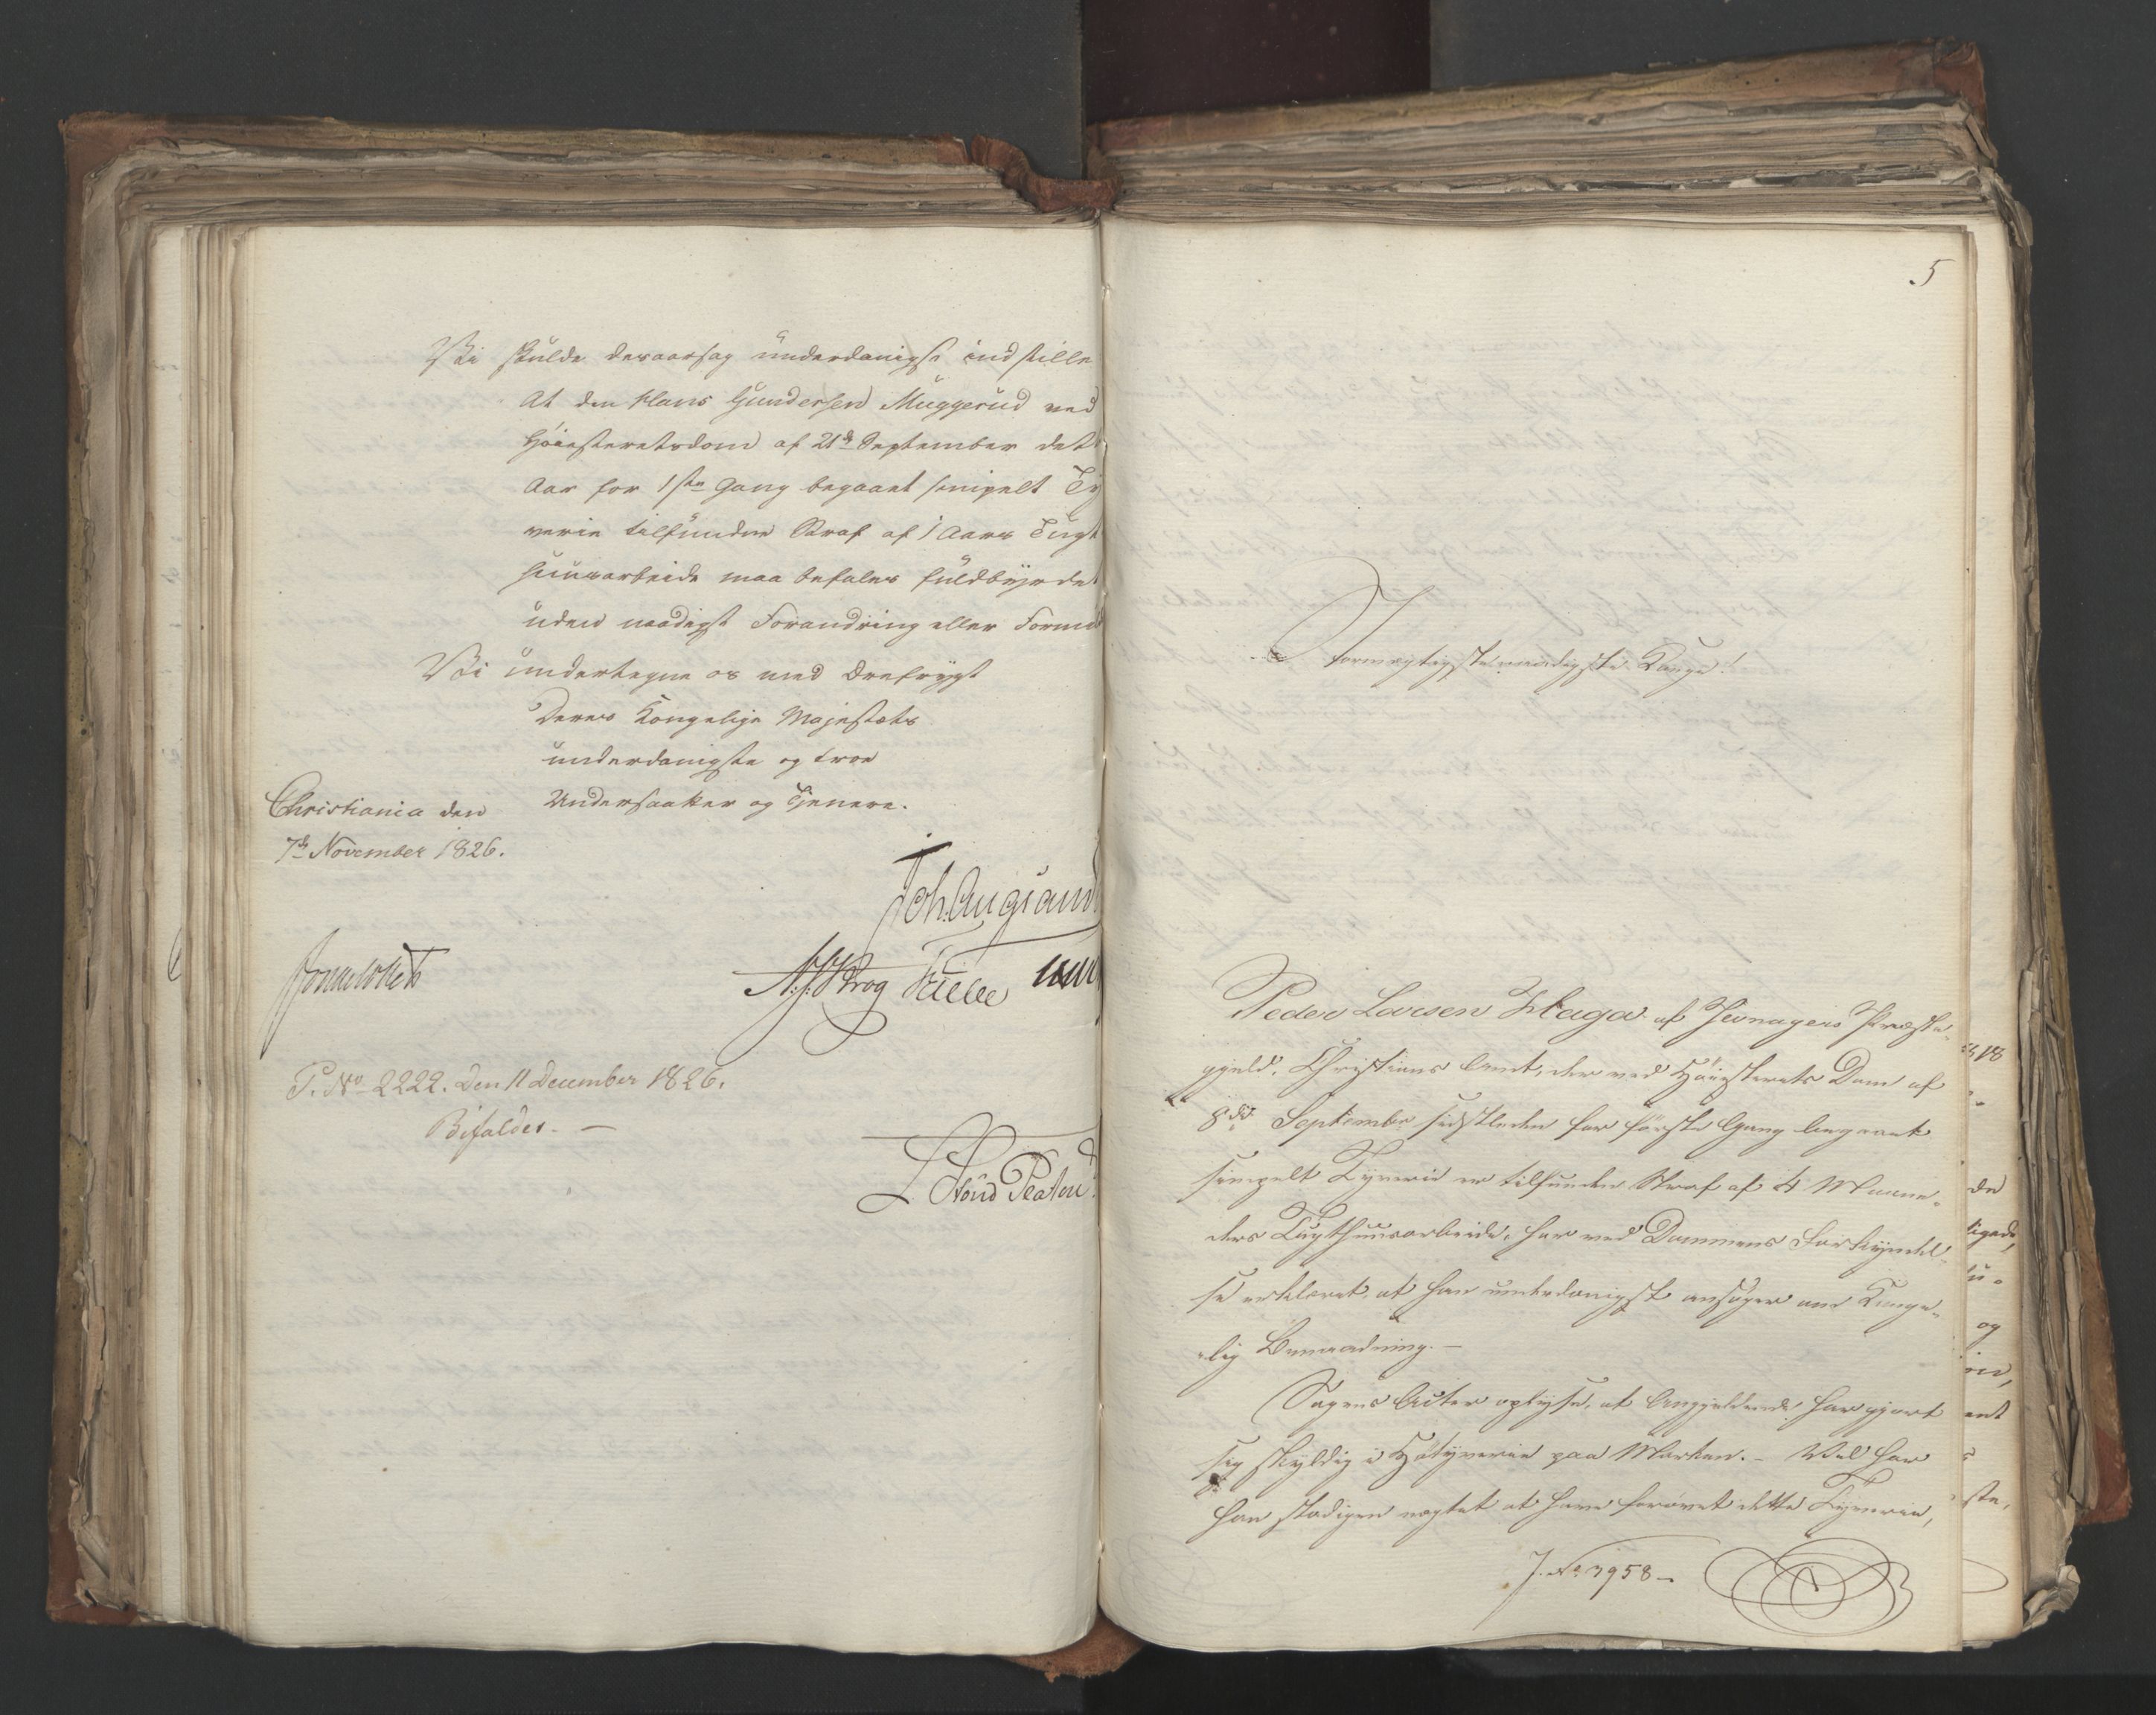 Vi skulde desaarsag underdanigst indstille
At den Hans Gundersen Muggerud ved
Høiesteretsdom af 21de September dette
Aar for 1ste Gang begaaet simpelt Ty
verie tilfundne Straf af 1 Aars Tugt
huusarbeide maa befales fuldbyrdet
uden naadigst Forandring eller Formil
Vi undertegne os med Ærefrygt
Deres Kongelige Majestæts
underdanigste og troe
Undersaatter og Tjenere.
Christiania den
7de November 1826.
Joh. Aug: Sand
Jonas Collett
A. J. Krog
P. No 2222. Den 11 December 1826.
Bifaldes. —
L. Stoud Platou
5
Stormægtigste naadigste Konge!
Peder Larsen Haga af Jevnagers Præste-
gjeld, Christians Amt, der ved Høiesterets Dom af
8de September sidstleden for første Gang begaaet
simpelt Tyverie er tilfunden Straf af 4 Maane-
ders Tugthuusarbeide, har ved Dommens Forkyndel-
se erklæret, at han underdanigst ansøger om Konge-
lig Benaadning. —
Sagens Acter oplyse, at Angjeldende har gjort
sig skyldig i Høtyverie paa Marken. — Vel har
han stadigen nægtet at have forøvet dette Tyverie,
J. No 3958 —